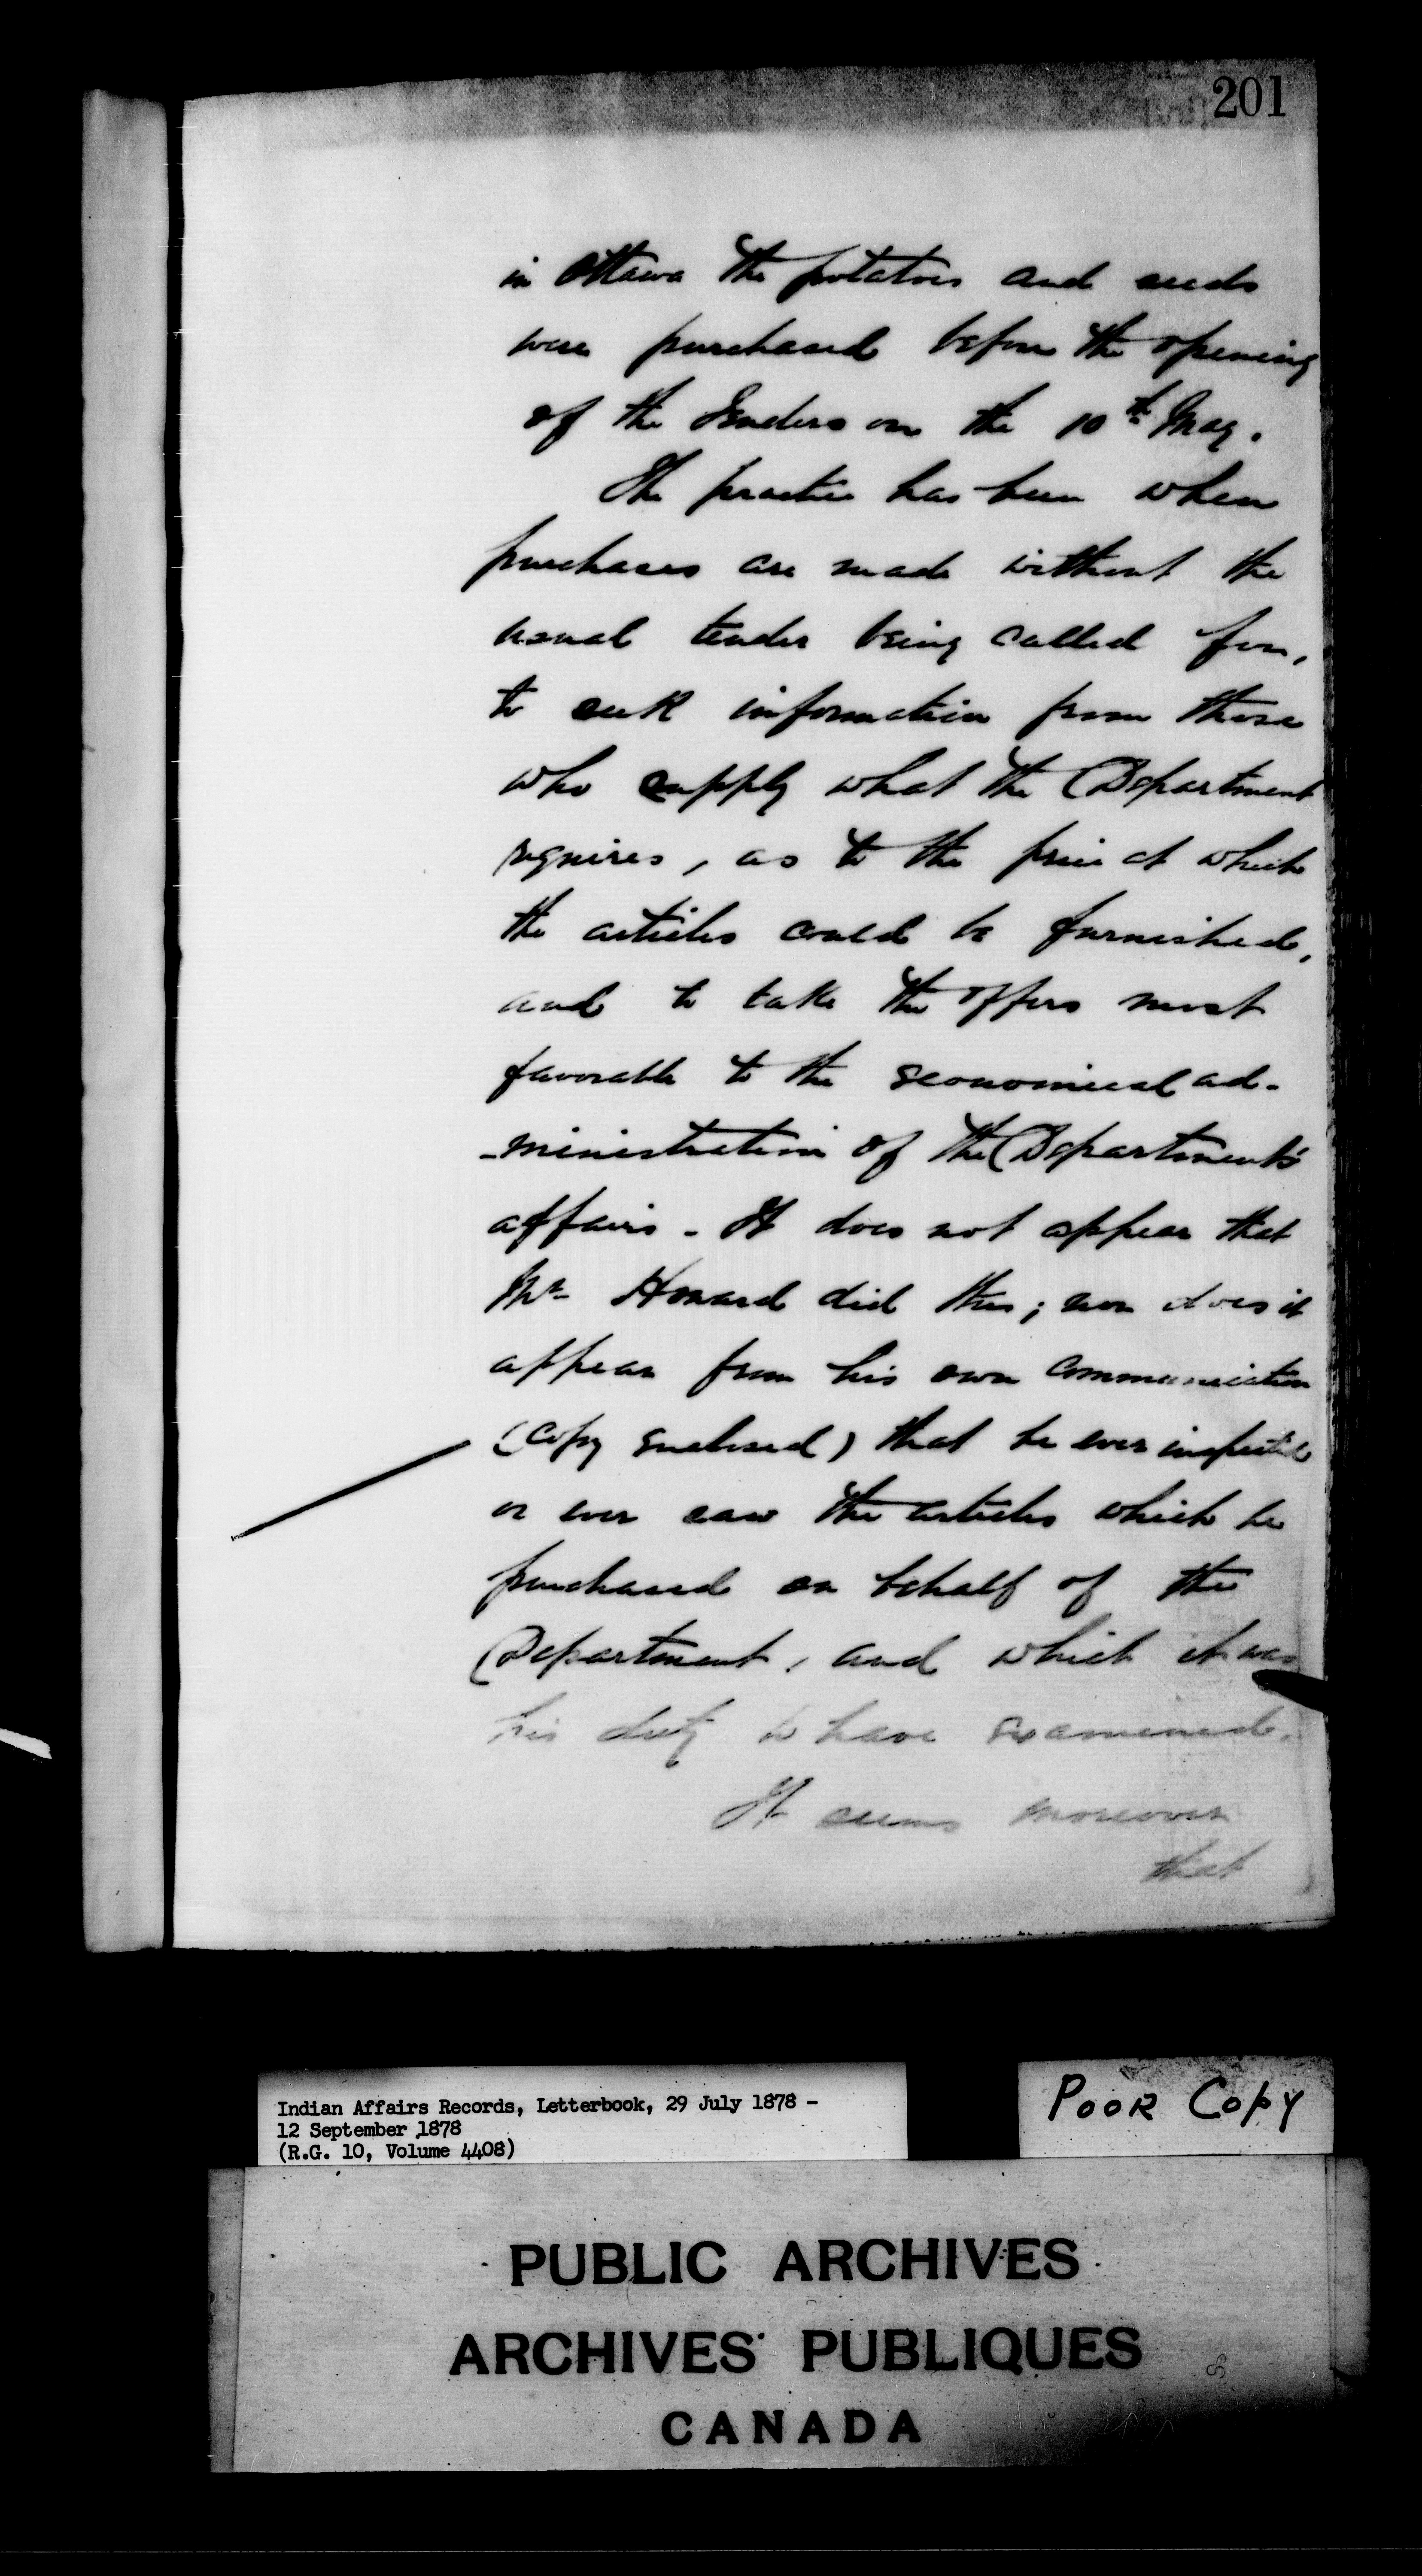 201
in Ottawa the potatoes and seeds
were purchased before the opening
of the Tenders on the 10th May.
The practice has been when
purchases are made without the
usual tender being called for,
to seek information from those
who supply what the Department
requires, as to the price at which
the articles could be furnished,
and to take the offers most
favorable to the economical ad-
-ministration of the Department's
affairs - It does not appear that
Mr Howard did this; nor does it
appear from his own communication
(copy enclosed) that he ever inspected
or ever saw the articles which he
purchased on behalf of the
Department, and which it was
his duty to have examined.
It seems moreover
that
Indian Affairs Records, Letterbook, 29 July 1878 -
12 September 1878
(R.G. 10, Volume 4408)
POOR COPY
PUBLIC ARCHIVES
ARCHIVES PUBLIQUES
CANADA